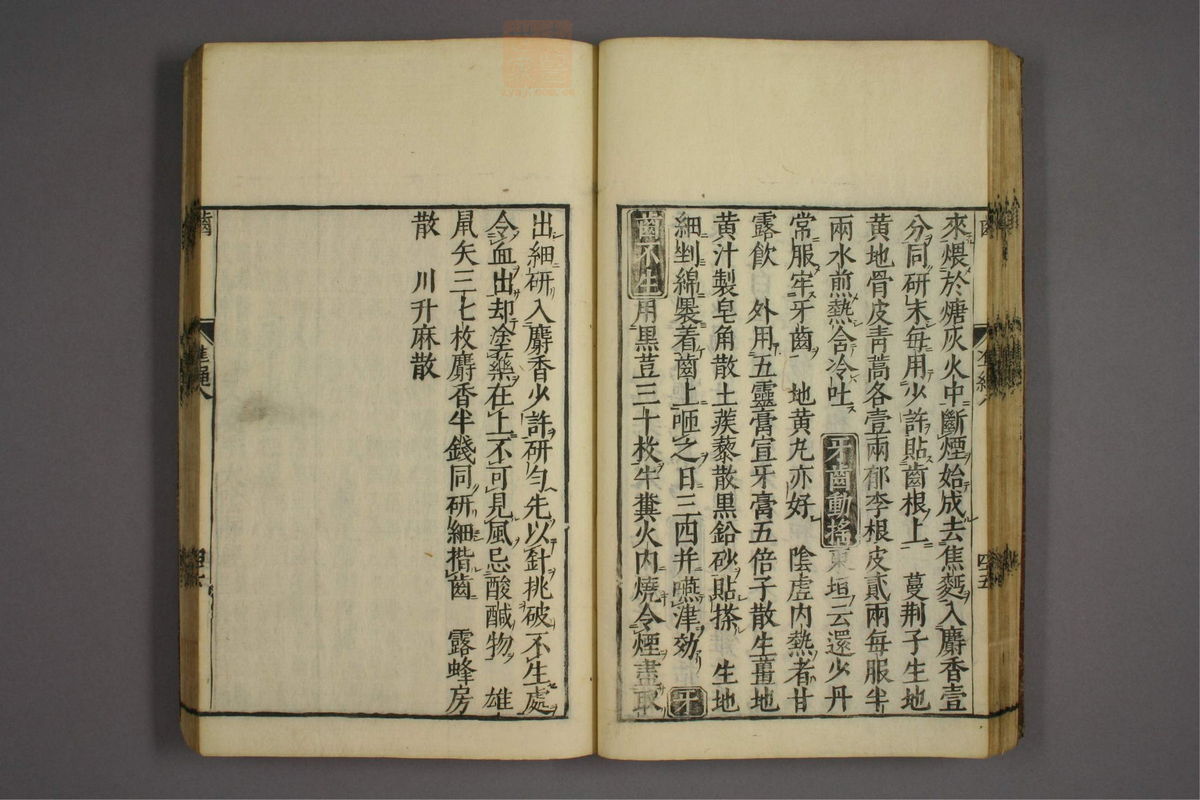 來煨於煻灰火中斷煙始成去焦麫入麝香壹
分同研末每用少許貼齒根上　蔓荆子生地
黄地骨皮青蒿各壹兩郁李根皮貳兩每服半
兩水煎熱含冷吐　牙齒動搖東垣云還少丹
常服牢牙齒　地黄丸亦好　陰虛内熱者甘
露飲　外用五靈膏宣牙膏五倍子散生薑地
黄汁製皂角散土蒺藜散黒鉛砂貼搽　生地
細剉綿褁着齒上咂之日三四并嚥津効　牙
齒不生用黒荳三十枚牛糞火内燒令煙盡取
四五
出細研入麝香少許研勻先以針挑破不生處
令血出却塗藥在上不可見風忌酸鹹物　雄
鼠矢三七枚麝香半錢同研細揩齒　露蜂房
散　川升麻散
齒
準繩八